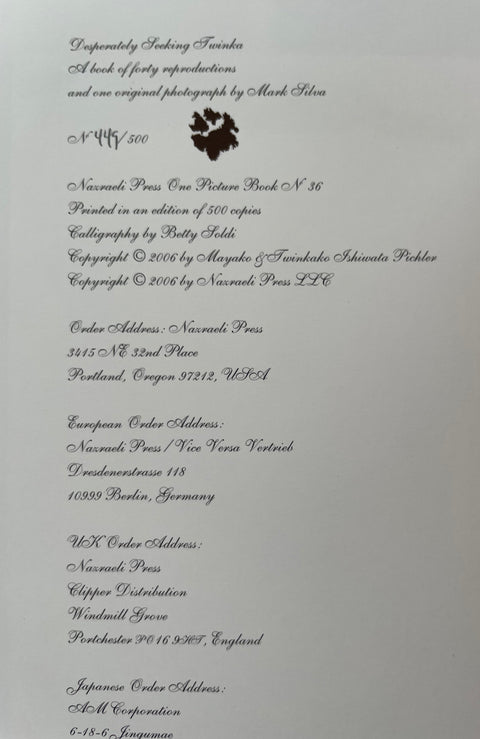 Desperately Seeking Twinka
A book of forty reproductions
and one original photograph by Mark Silva
Nº 449/500
Nazraeli Press One Picture Book Nº 36
Printed in an edition of 500 copies
Calligraphy by Betty Soldi
Copyright © 2006 by Mayako & Twinkako Ishiwata Pichler
Copyright © 2006 by Nazraeli Press LLC
Order Address: Nazraeli Press
3415 NE 32nd Place
Portland, Oregon 97212, USA
European Order Address:
Nazraeli Press / Vice Versa Vertrieb
Dresdenerstrasse 118
10999 Berlin, Germany
UK Order Address:
Nazraeli Press
Clipper Distribution
Windmill Grove
Portchester PO16 9HT, England
Japanese Order Address:
AM Corporation
6-18-6 Jingumae